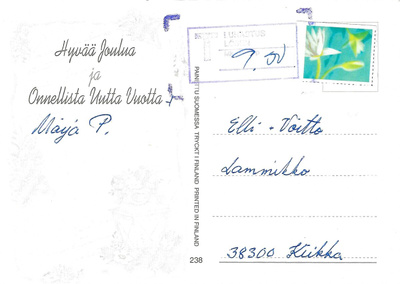 Hyvää Joulua
ja
Onnellista Uutta Vuotta
Maija P.
PAINETTU SUOMESSA TRYCKT I FINLAND PRINTED IN FINLAND
238
9.50
Elli - Voitto
Lammikko
38300 Kiikka